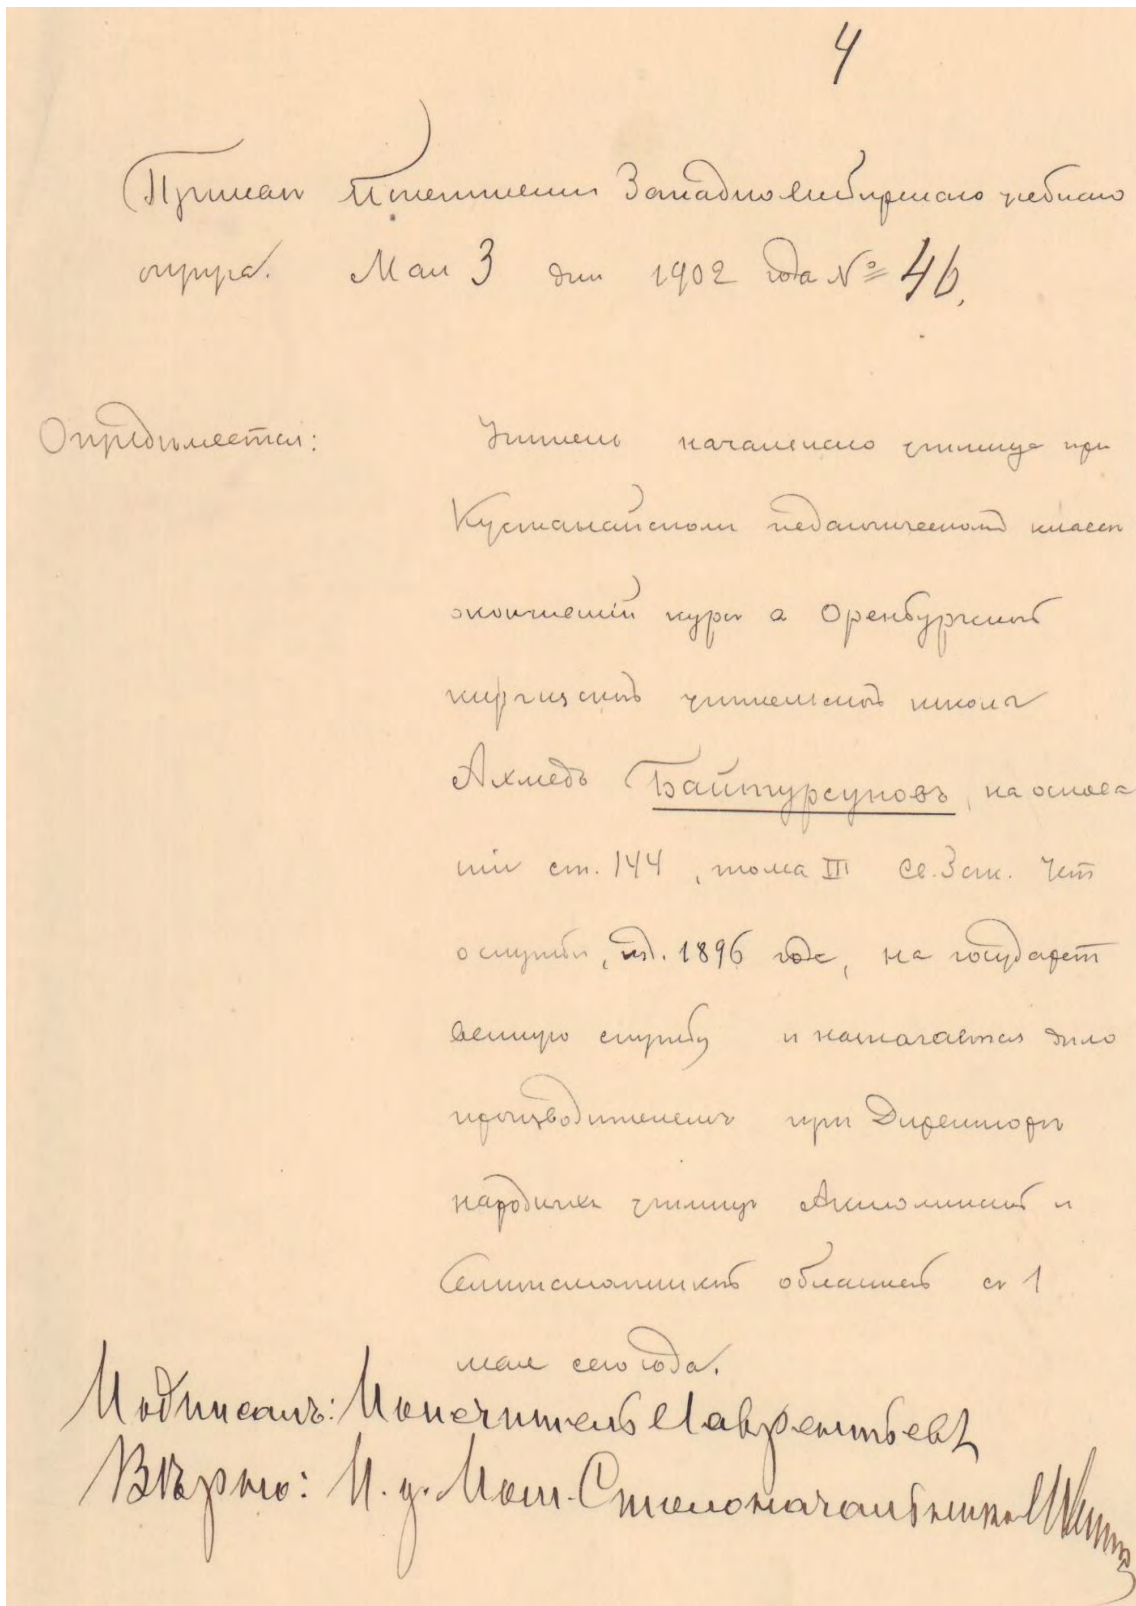 4
Приказъ Попечителя Западно-Сибирскаго учебнаго
округа. Мая 3 дня 1902 года № 46.
Опредѣляется:
Учитель начальнаго училища при
Кустанайскомъ педагогическомъ классѣ
окончившій курсъ в Оренбургской
киргизской учительской школѣ
Ахмедъ Байтурсуновъ, на основа
ніи ст. 144, тома III Св. Зак. Уст
о службѣ, изд. 1896 года, на государст
венную службу и назначается дѣло
производителемъ при Директорѣ
народныхъ училищъ Акмолинской и
Семипалатинской областей съ 1
мая сего года.
Подписалъ: Попечитель Лаврентьевъ
Вѣрно: И. д. Пом. Столоначальника